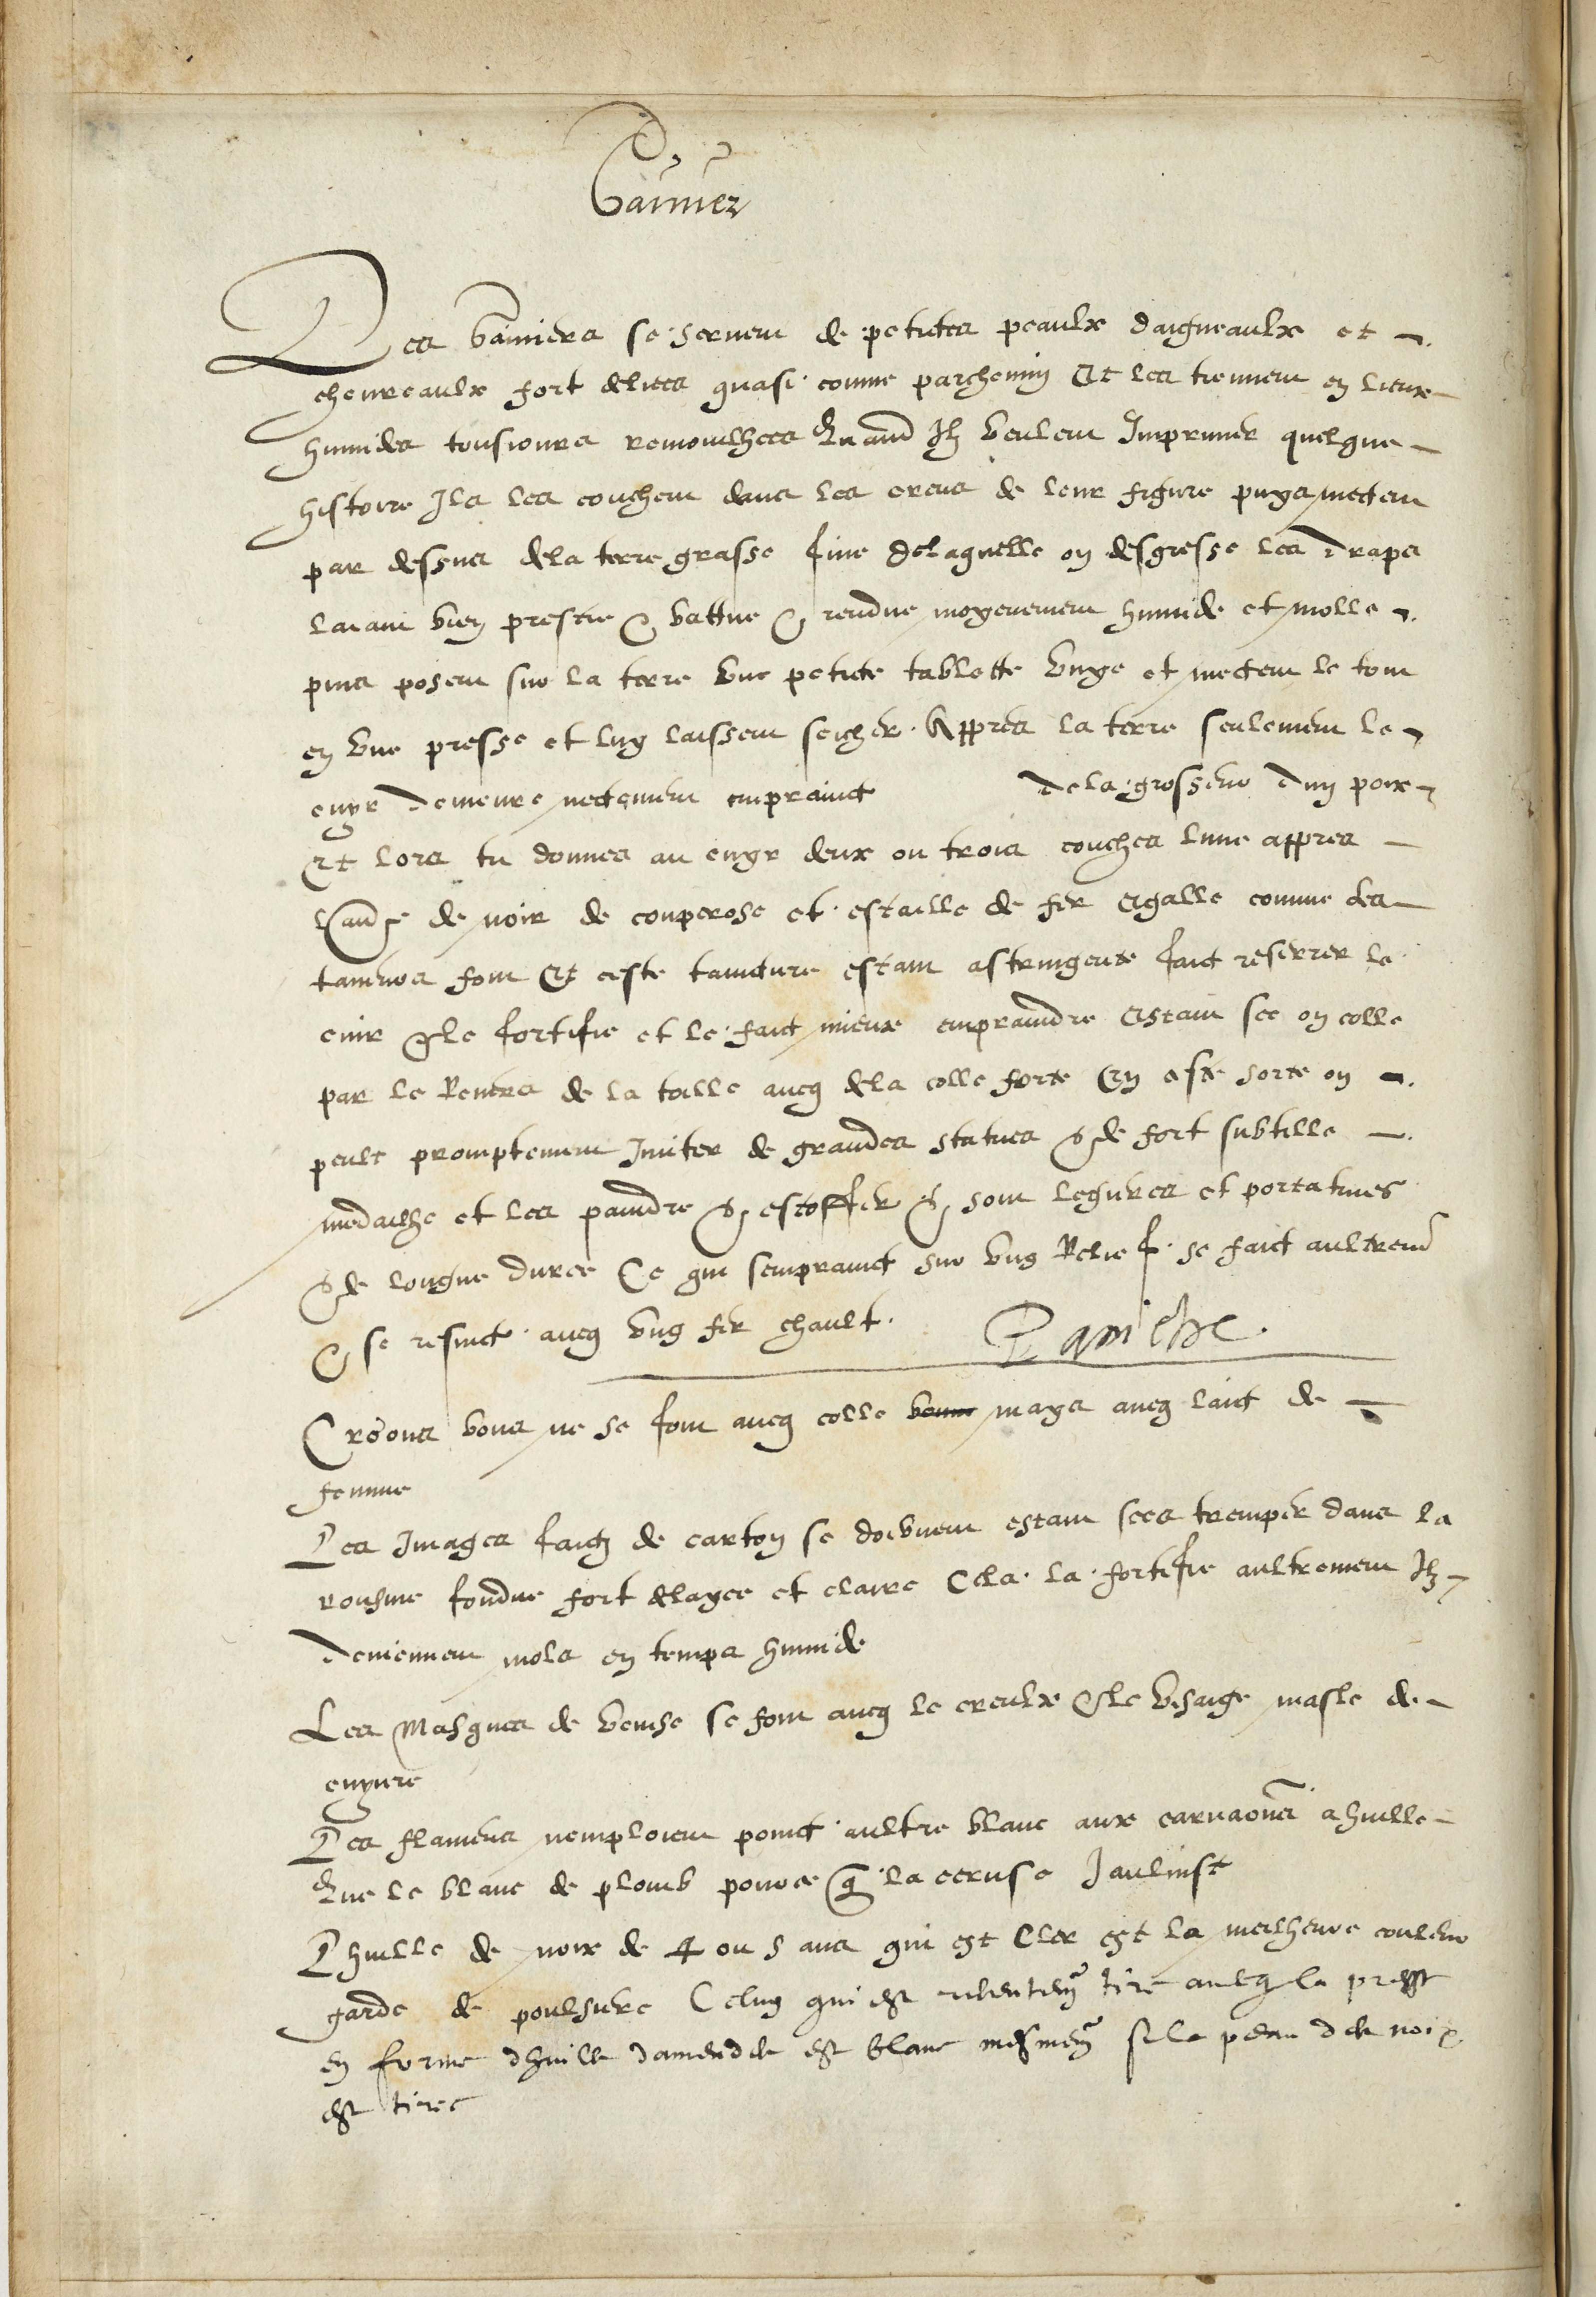 Gaynier
Les gayniers se servent de petites peaulx daigneaulx et
chevreaulx fort deliees quasi comme parchemin Et les tiennent en lieux
humides tousjours remouilhees Quand Ilz veulent Imprimer quelque
histoire Ils les couchent dans les creus de leur figure puys mectent
par dessus de la terre grasse fine de laquelle on desgresse les draps
laiant bien prestie & battue & rendue moyenement humide et molle
puis posent sur la terre une petite tablette unye et mectent le tout
en une presse et luy laissent seicher Appres la terre seulement le
cuyr demeure nectement emprainct de la grosseur dun poix
Et lors tu donnes au cuyr deux ou trois couches lune appres
laultre de noir de couperose et estaille de fer & galle comme les
taneurs font Et ceste taincture estant astringente faict reserrer le
cuir & le fortifie et le faict mieux empraindre Estant sec on colle
par le Revers de la toille avecq de la colle forte En ceste sorte on
peult promptement Imiter de grandes statues & de fort subtille
medailhe et les paindre & estoffer & sont legieres et portatives
& de longue duree Ce qui sempraint sur ung Relief se faict aultrement
& se resuict avecq ung fer chault
Panthe
Creons bons ne se font avecq colle mays avecq laict de
femme
Les Images faictz de carton se doibvent estant secs tremper dans la
rousine fondue fort delayee et claire Cela la fortifie aultrement Ilz
deviennent mols en temps humide
Les Masques de venise se font avecq le creulx & le visaige masle de
cuyvre
Les flamens nemploient poinct aultre blanc aux carnaons a huille
Que le blanc de plomb pource que la ceruse Jaulinst
Lhuille de noix de 4 ou 5 ans qui est Cler est la meilheure couleur
garde de poulsiere Celuy qui est tire avecq la presse
en forme dhuille damendes est blanc mesmem si la peau des noix
est tiree